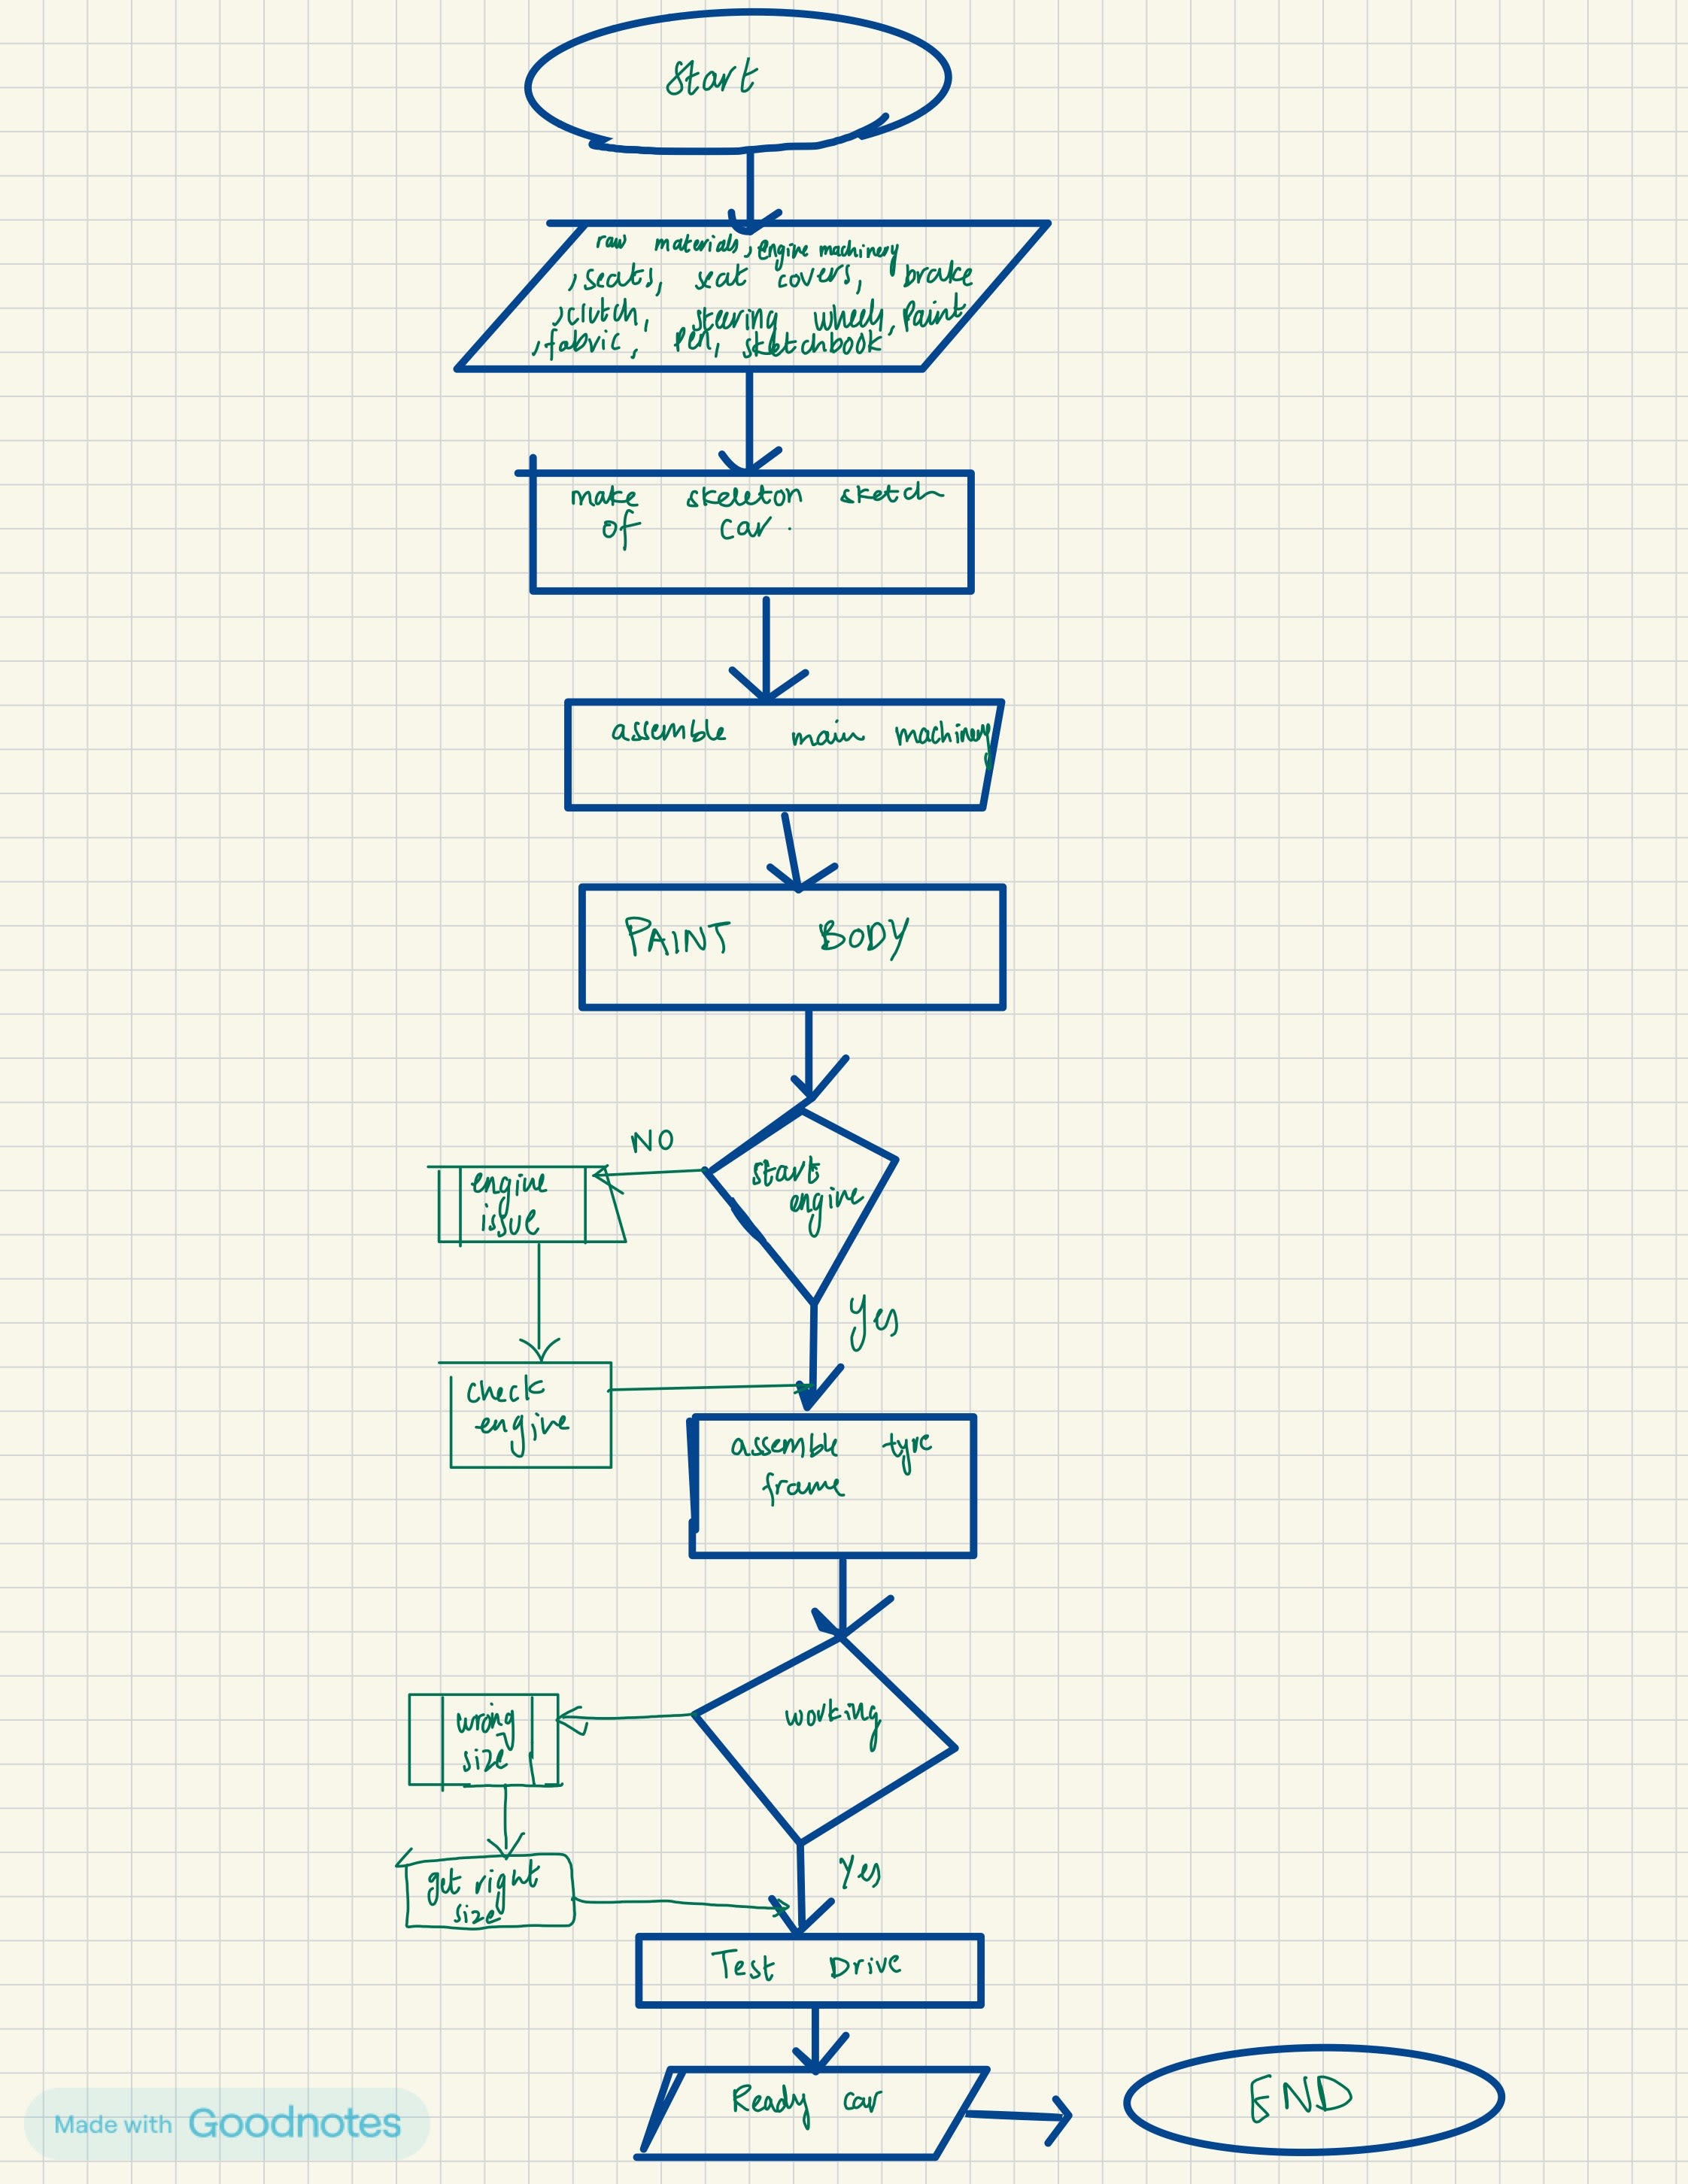 Start
raw materials, engine machinery
, seats, seat covers, brake
, clutch, steering wheel, Paint
, fabric, Pen, sketchbook
make skeleton sketch
of car.
assemble main machinery
PAINT BODY
NO
start
engine
engine
issue
Yes
check
engine
assemble tyre
frame
working
wrong
size
Yes
get right
size
Test Drive
Ready car
END
Made with Goodnotes